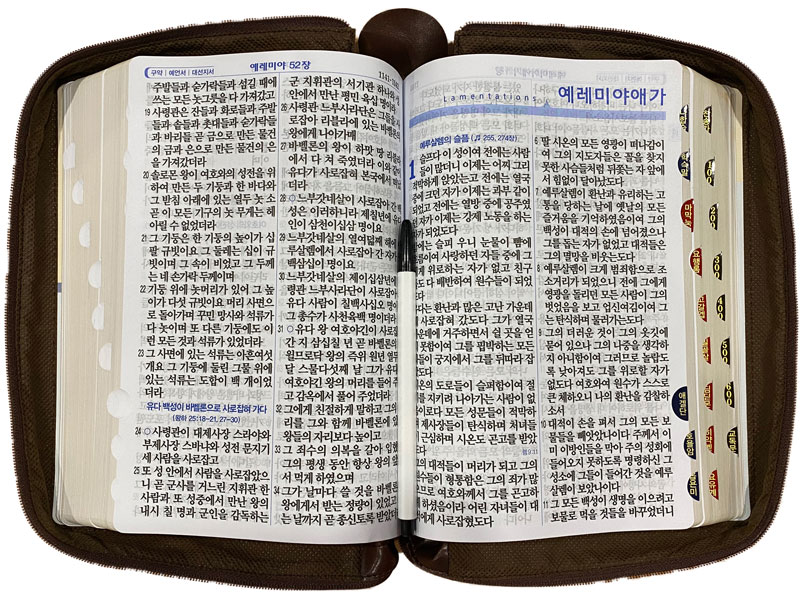 구약 | 예언서 | 대선지서
예레미야 52장
주발들과 숟가락들과 섬길 때에
쓰는 모든 놋그릇을 다 가져갔고
19 사령관은 잔들과 화로들과 주발
들과 솥들과 촛대들과 숟가락들
과 바리들 곧 금으로 만든 물건
의 금과 은으로 만든 물건의 은
을 가져갔더라
20 솔로몬 왕이 여호와의 성전을 위
하여 만든 두 기둥과 한 바다와
그 받침 아래에 있는 열두 놋 소
곧 이 모든 기구의 놋 무게는 헤
아릴 수 없었더라
21 그 기둥은 한 기둥의 높이가 십팔
규빗이요 그 둘레는 십이 규
빗이며 그 속이 비었고 그 두께
는 네 손가락 두께이며
22 기둥 위에 놋머리가 있어 그 높
이가 다섯 규빗이요 머리 사면으
로 돌아가며 꾸민 망사와 석류가
다 놋이며 또 다른 기둥에도 이
런 모든 것과 석류가 있었더라
23 그 사면에 있는 석류는 아흔여섯
개요 그 기둥에 둘린 그물 위에
있는 석류는 도합이 백 개이었
더라
유다 백성이 바벨론으로 사로잡혀 가다
(왕하 25:18-21, 27-30)
24 ○사령관이 대제사장 스라야와
부제사장 스바냐와 성전 문지기
세 사람을 사로잡고
25 또 성 안에서 사람을 사로잡았으
니 곧 군사를 거느린 지휘관 한
사람과 또 성중에서 만난 왕의
내시 칠 명과 군인을 감독하는
군 지휘관의 서기관 하나와
안에서 만난 평민 육십 명이라
26 사령관 느부사라단은 그들을
사로잡아 리블라에 있는 바벨론의
왕에게 나아가매
27 바벨론의 왕이 하맛 땅 리블라
에서 다 쳐 죽였더라 이와 같이
유다가 사로잡혀 본국에서 떠났
더라
28 ○느부갓네살이 사로잡아 간 백
성은 이러하니라 제칠년에 유다
인이 삼천이십삼 명이요
29 느부갓네살의 열여덟째 해에
예루살렘에서 사로잡아 간 자가
팔백삼십이 명이요
30 느부갓네살의 제이십삼년에
사령관 느부사라단이 사로잡아 간
유다 사람이 칠백사십오 명이니
그 총수가 사천육백 명이더라
31 ○유다 왕 여호야긴이 사로잡혀
간 지 삼십칠 년 곧 바벨론의
에윌므로닥 왕의 즉위 원년 열두째
달 스물다섯째 날 그가 유다의
여호야긴 왕의 머리를 들어 주었
고 감옥에서 풀어 주었더라
32 그에게 친절하게 말하고 그의
자리를 그와 함께 바벨론에 있는
왕들의 자리보다 높이고
33 그 죄수의 의복을 갈아 입혔고
그의 평생 동안 항상 왕의 앞에
서 먹게 하였으며
34 그가 날마다 쓸 것을 바벨론의
왕에게서 받는 정량이 있었고 죽
는 날까지 곧 종신토록 받았더라
Lamentations
예레미야애가
예루살렘의 슬픔 (♫ 255, 274장)
1 슬프다 이 성이여 전에는 사람
들이 많더니 이제는 어찌 그리
적막하게 앉았는고 전에는 열국
중에 크던 자가 이제는 과부 같이
되었고 전에는 열방 중에 공주였
던 자가 이제는 강제 노동을 하는
자가 되었도다
밤에는 슬피 우니 눈물이 뺨에
흐름이여 사랑하던 자들 중에 그
에게 위로하는 자가 없고 친구
들도 다 배반하여 원수들이 되었
도다
유다는 환난과 많은 고난 가운데
에 사로잡혀 갔도다 그가 열국
가운데에 거주하면서 쉴 곳을 얻
지 못함이여 그를 핍박하는 모든
자들이 궁지에서 그를 뒤따라 잡
았도다
시온의 도로들이 슬퍼함이여 절
기를 지키려 나아가는 사람이 없
음이로다 모든 성문들이 적막하
며 제사장들이 탄식하며 처녀들
이 근심하며 시온도 곤고를 받았
도다
그의 대적들이 머리가 되고 그의
원수들이 형통함은 그의 죄가 많
으므로 여호와께서 그를 곤고하
게 하셨음이라 어린 자녀들이 대
적에게 사로잡혔도다
6 딸 시온의 모든 영광이 떠나감이
여 그의 지도자들은 꼴을 찾지
못한 사슴들처럼 뒤쫓는 자 앞에
서 힘없이 달아났도다
7 예루살렘이 환난과 유리하는 고
통을 당하는 날에 옛날의 모든
즐거움을 기억하였음이여 그의
백성이 대적의 손에 넘어졌으나
그를 돕는 자가 없었고 대적들은
그의 멸망을 비웃는도다
8 예루살렘이 크게 범죄함으로 조
소거리가 되었으니 전에 그에게
영광을 돌리던 모든 사람이 그의
벗었음을 보고 업신여김이여 그
는 탄식하며 물러가는도다
9 그의 더러운 것이 그의 옷깃에
묻어 있으나 그의 나중을 생각하
지 아니함이여 그러므로 놀랍도
록 낮아져도 그를 위로할 자가
없도다 여호와여 원수가 스스로
큰 체하오니 나의 환난을 감찰하
소서
10 대적이 손을 펴서 그의 모든 보
물들을 빼앗았나이다 주께서 이
미 이방인들을 막아 주의 성회에
들어오지 못하도록 명령하신 그
성소에 그들이 들어간 것을 예루
살렘이 보았나이다
11 그 모든 백성이 생명을 이으려고
보물로 먹을 것들을 바꾸었더니
마막눅
요행롬
애겔단
호욜암
교독문
100
200
300
400
500
600